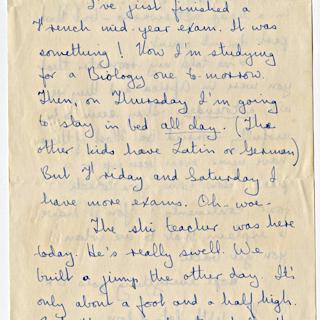 I've just finished a
French mid-year exam. It was
something! Now I'm studying
for a Biology one to-morrow.
Then, on Thursday I'm going
to stay in bed all day. (The
other kids have Latin or German)
But Friday and Saturday I
have more exams. Oh-woe-
The ski teacher was here
today. He's really swell. We
built a jump the other day. It's
only about a foot and a half high.